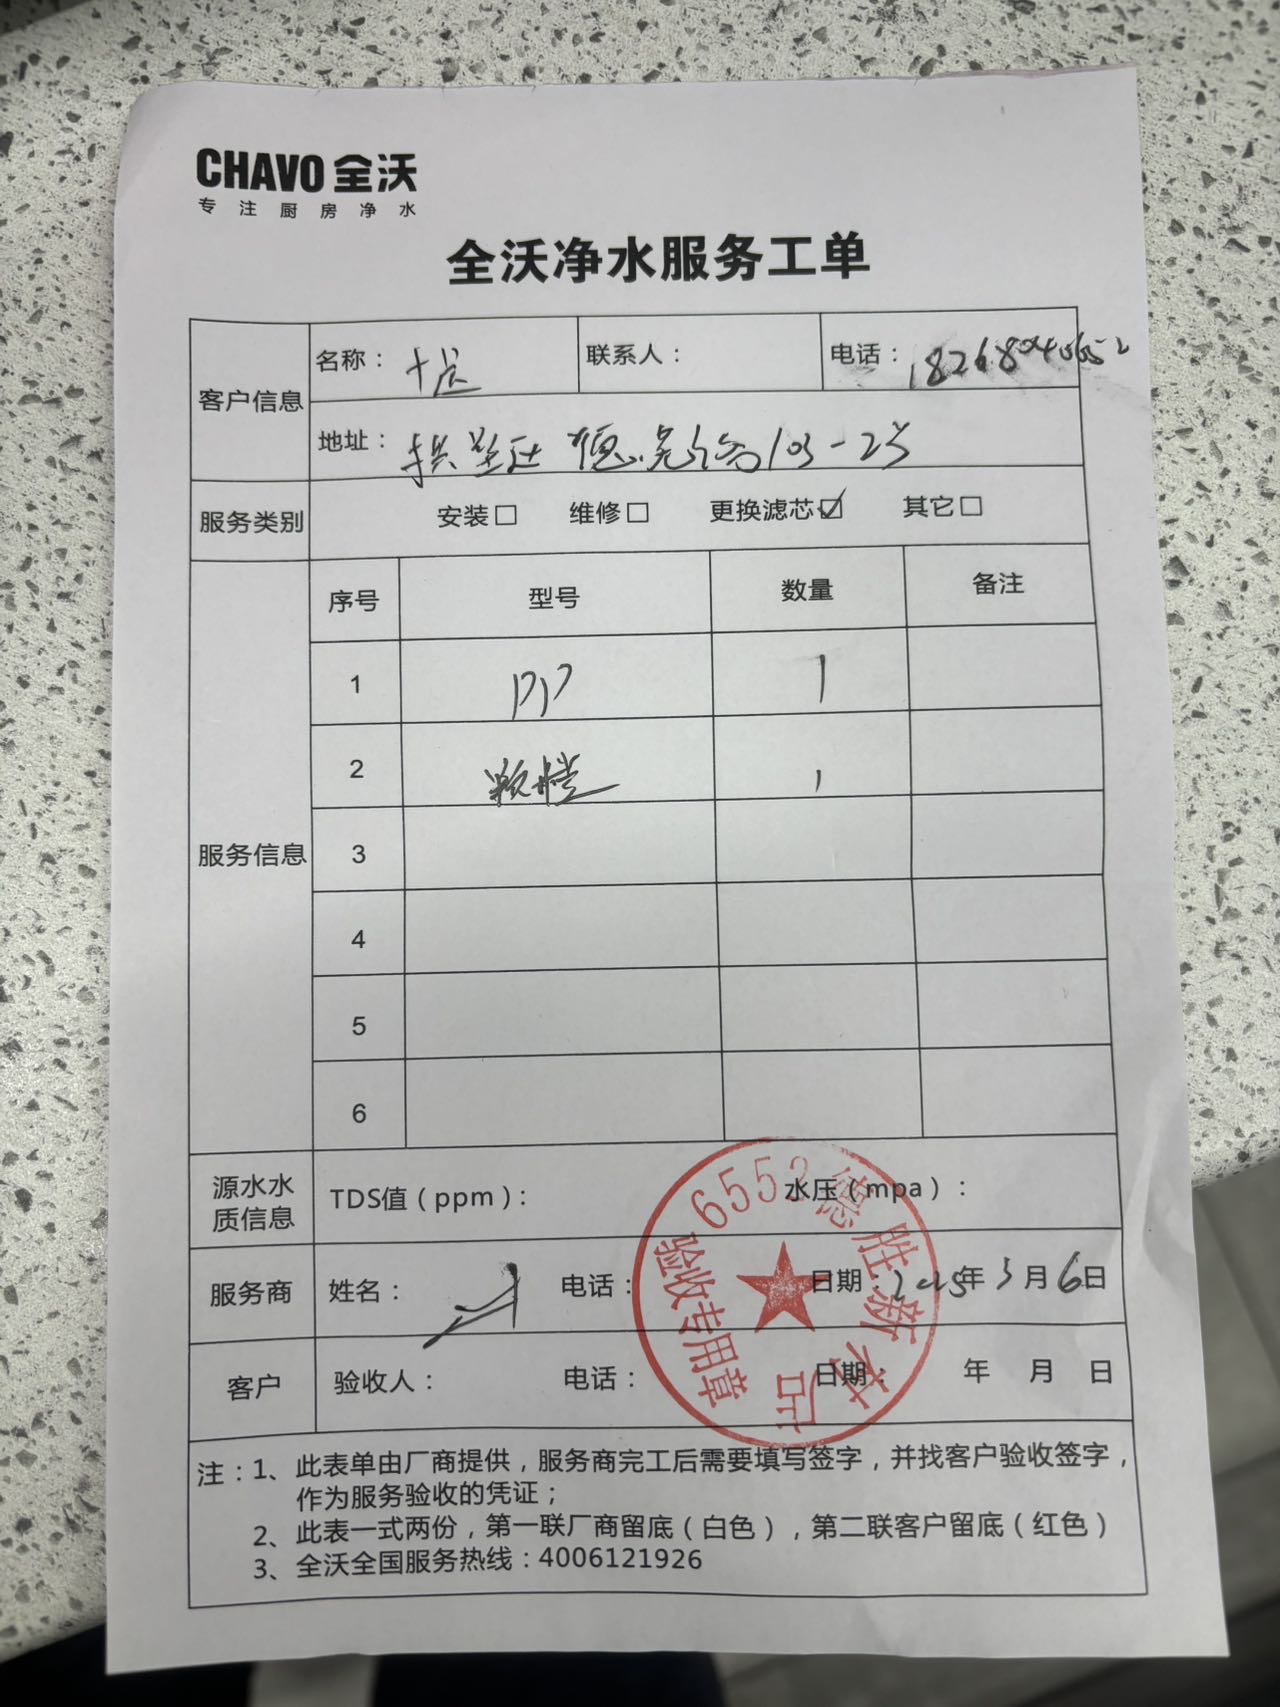 CHAVO 全沃
专注厨房净水
全沃净水服务工单
客户信息 名称： 联系人： 电话：
地址： 103-25
服务类别 安装□ 维修□ 更换滤芯☑ 其它□
服务信息 序号 型号 数量 备注
1 PP 1
2 1
3
4
5
6
源水水质信息 TDS值（ppm）： 水压（mpa）：
服务商 姓名： 电话： 日期：2025年3月6日
客户 验收人： 电话： 日期： 年 月 日
6552德胜新村店
验收专用章
注：1、此表单由厂商提供，服务商完工后需要填写签字，并找客户验收签字，
作为服务验收的凭证；
2、此表一式两份，第一联厂商留底（白色），第二联客户留底（红色）
3、全沃全国服务热线：4006121926